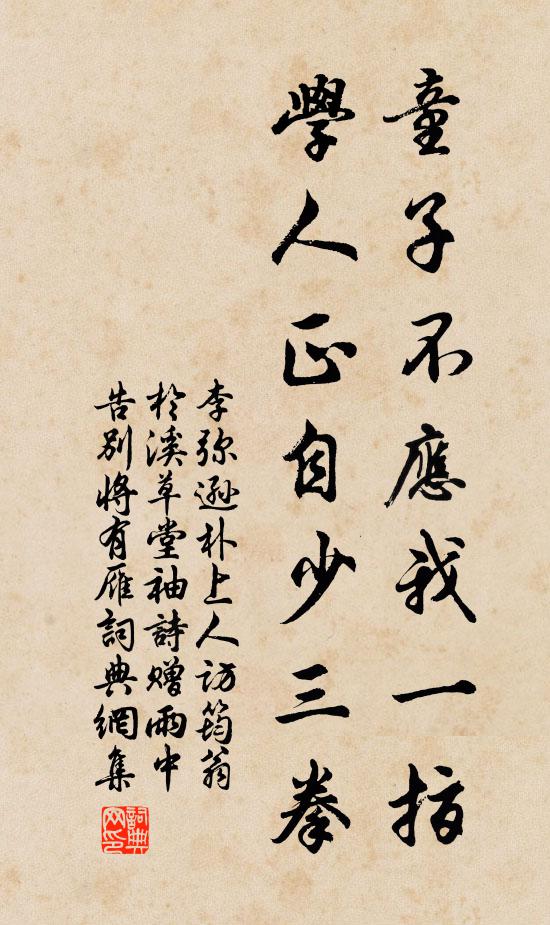 童子不應我一指
學人正自少三拳
李弥遜朴上人訪筠翁
於溪草堂袖詩贈雨中
告別將有雁詞典網集
詞典网印